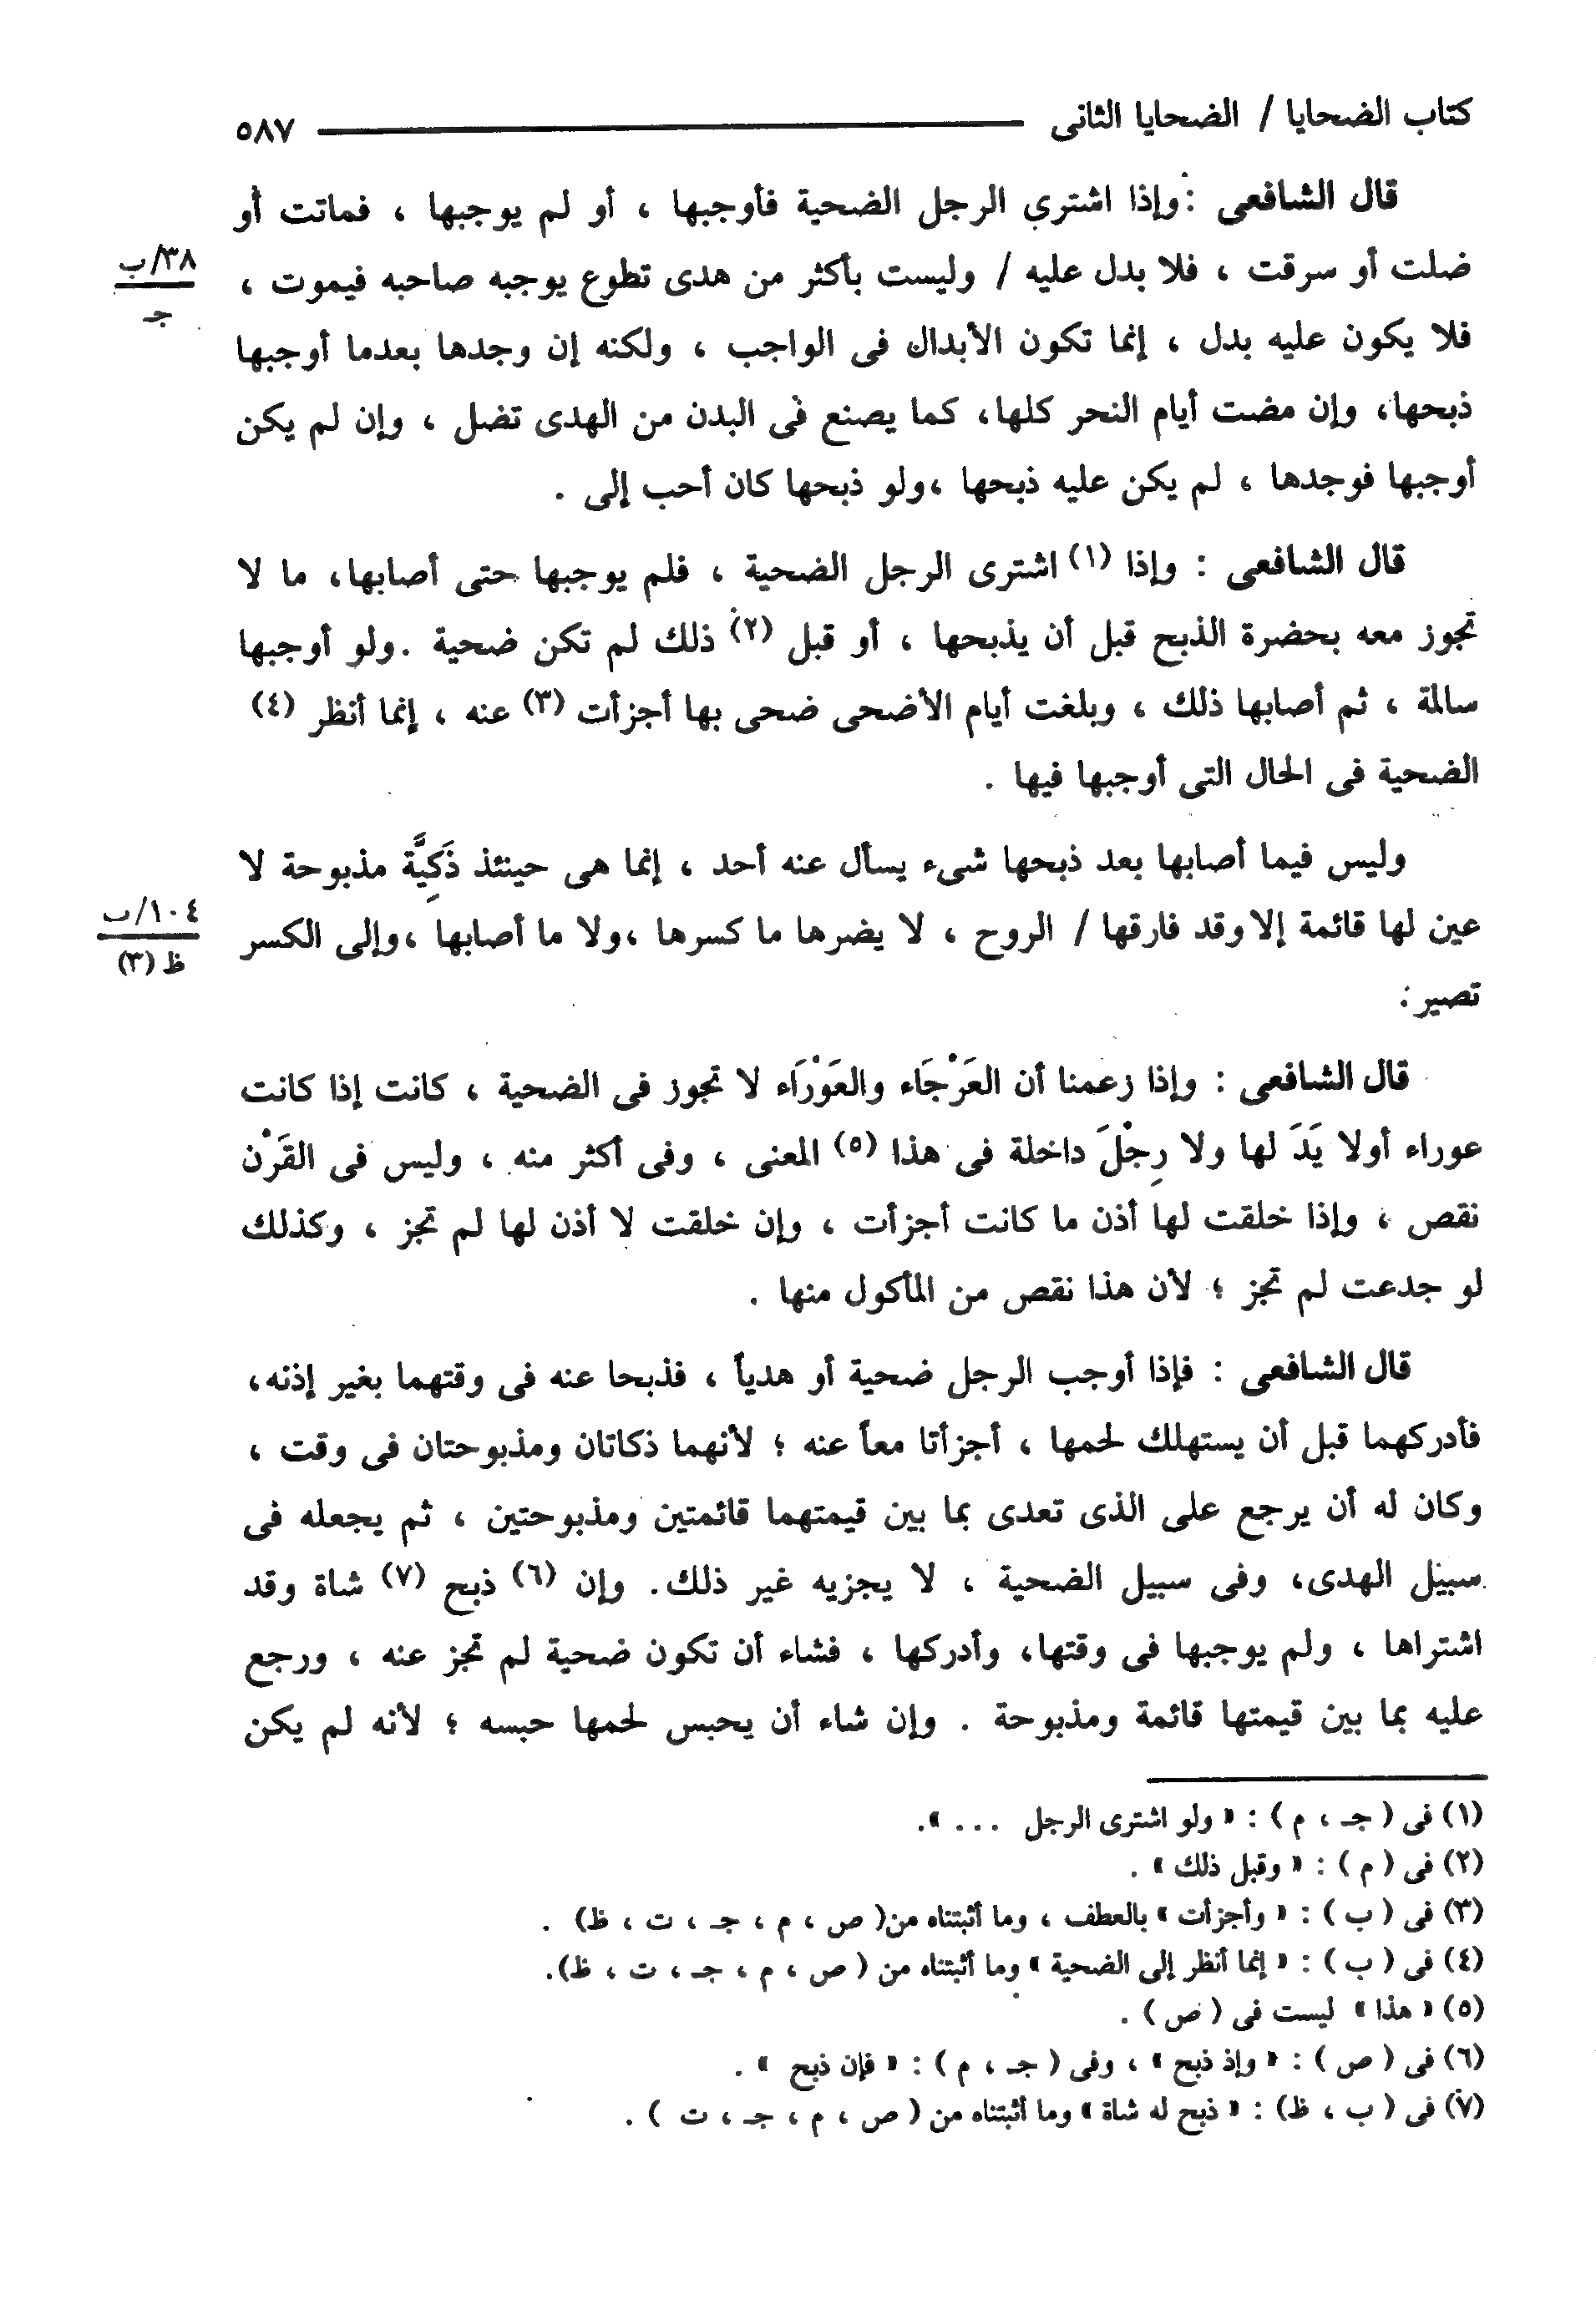 كتاب الضحايا / الضحايا الثانى ٥٨٧
قال الشافعى : وإذا اشترى الرجل الضحية فأوجبها ، أو لم يوجبها ، فماتت أو
ضلت أو سرقت ، فلا بدل عليه / وليست بأكثر من هدى تطوع يوجبه صاحبه فيموت ،
٣٨/ب
جـ
فلا يكون عليه بدل ، إنما تكون الأبدال فى الواجب ، ولكنه إن وجدها بعدما أوجبها
ذبحها، وإن مضت أيام النحر كلها، كما يصنع فى البدن من الهدى تضل ، وإن لم يكن
أوجبها فوجدها ، لم يكن عليه ذبحها ،ولو ذبحها كان أحب إلى .
قال الشافعى : وإذا (١) اشترى الرجل الضحية ، فلم يوجبها حتى أصابها، ما لا
تجوز معه بحضرة الذبح قبل أن يذبحها ، أو قبل (٢) ذلك لم تكن ضحية .ولو أوجبها
سالمة ، ثم أصابها ذلك ، وبلغت أيام الأضحى ضحى بها أجزأت (٣) عنه ، إنما أنظر (٤)
الضحية فى الحال التى أوجبها فيها .
وليس فيما أصابها بعد ذبحها شىء يسأل عنه أحد ، إنما هى حينئذ ذَكِيَّة مذبوحة لا
عين لها قائمة إلا وقد فارقها / الروح ، لا يضرها ما كسرها ،ولا ما أصابها ،وإلى الكسر
١٠٤/ب
ظ (٣)
تصير .
قال الشافعى : وإذا زعمنا أن العَرْجَاء والعَوْرَاء لا تجوز فى الضحية ، كانت إذا كانت
عوراء أولا يَدَ لها ولا رِجْلَ داخلة فى هذا (٥) المعنى ، وفى أكثر منه ، وليس فى القَرْن
نقص ، وإذا خلقت لها أذن ما كانت أجزأت ، وإن خلقت لا أذن لها لم تجز ، وكذلك
لو جدعت لم تجز ؛ لأن هذا نقص من المأكول منها .
قال الشافعى : فإذا أوجب الرجل ضحية أو هدياً ، فذبحا عنه فى وقتهما بغير إذنه،
فأدركهما قبل أن يستهلك لحمها ، أجزأتا معاً عنه ؛ لأنهما ذكاتان ومذبوحتان فى وقت ،
وكان له أن يرجع على الذى تعدى بما بين قيمتهما قائمتين ومذبوحتين ، ثم يجعله فى
سبيل الهدى، وفى سبيل الضحية ، لا يجزيه غير ذلك. وإن (٦) ذبح (٧) شاة وقد
اشتراها ، ولم يوجبها فى وقتها، وأدركها ، فشاء أن تكون ضحية لم تجز عنه ، ورجع
عليه بما بين قيمتها قائمة ومذبوحة . وإن شاء أن يحبس لحمها حبسه ؛ لأنه لم يكن
(١) فى ( جـ ، م ) : « ولو اشترى الرجل ... ».
(٢) فى ( م ) : « وقبل ذلك » .
(٣) فى ( ب ) : « وأجزأت » بالعطف ، وما أثبتناه من( ص ، م ، جـ ، ت ، ظ) .
(٤) فى ( ب ) : « إنما أنظر إلى الضحية » وما أثبتناه من ( ص ، م ، جـ ، ت ، ظ).
(٥) « هذا » ليست فى ( ص ) .
(٦) فى ( ص ) : « وإذ ذبح » ، وفى ( جـ ، م ) : « فإن ذبح » .
(٧) فى ( ب ، ظ) : « ذبح له شاة » وما أثبتناه من ( ص ، م ، جـ ، ت ) .